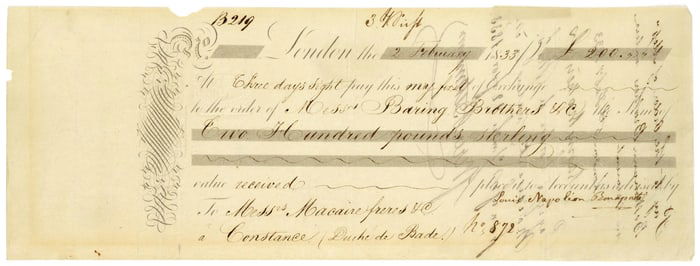 B219 3 d/Sight
No. London the 2 February 1833 / £ 200
At Three days sight pay this my first of Exchange
to the order of Mess.rs Baring Brothers & C.o the Sum of
Two Hundred pounds sterling
value received place it to account as advised by
Louis Napoleon Bonaparte
To Mess.rs Macaire freres & C.
à Constance (Duché de Bade) No 872